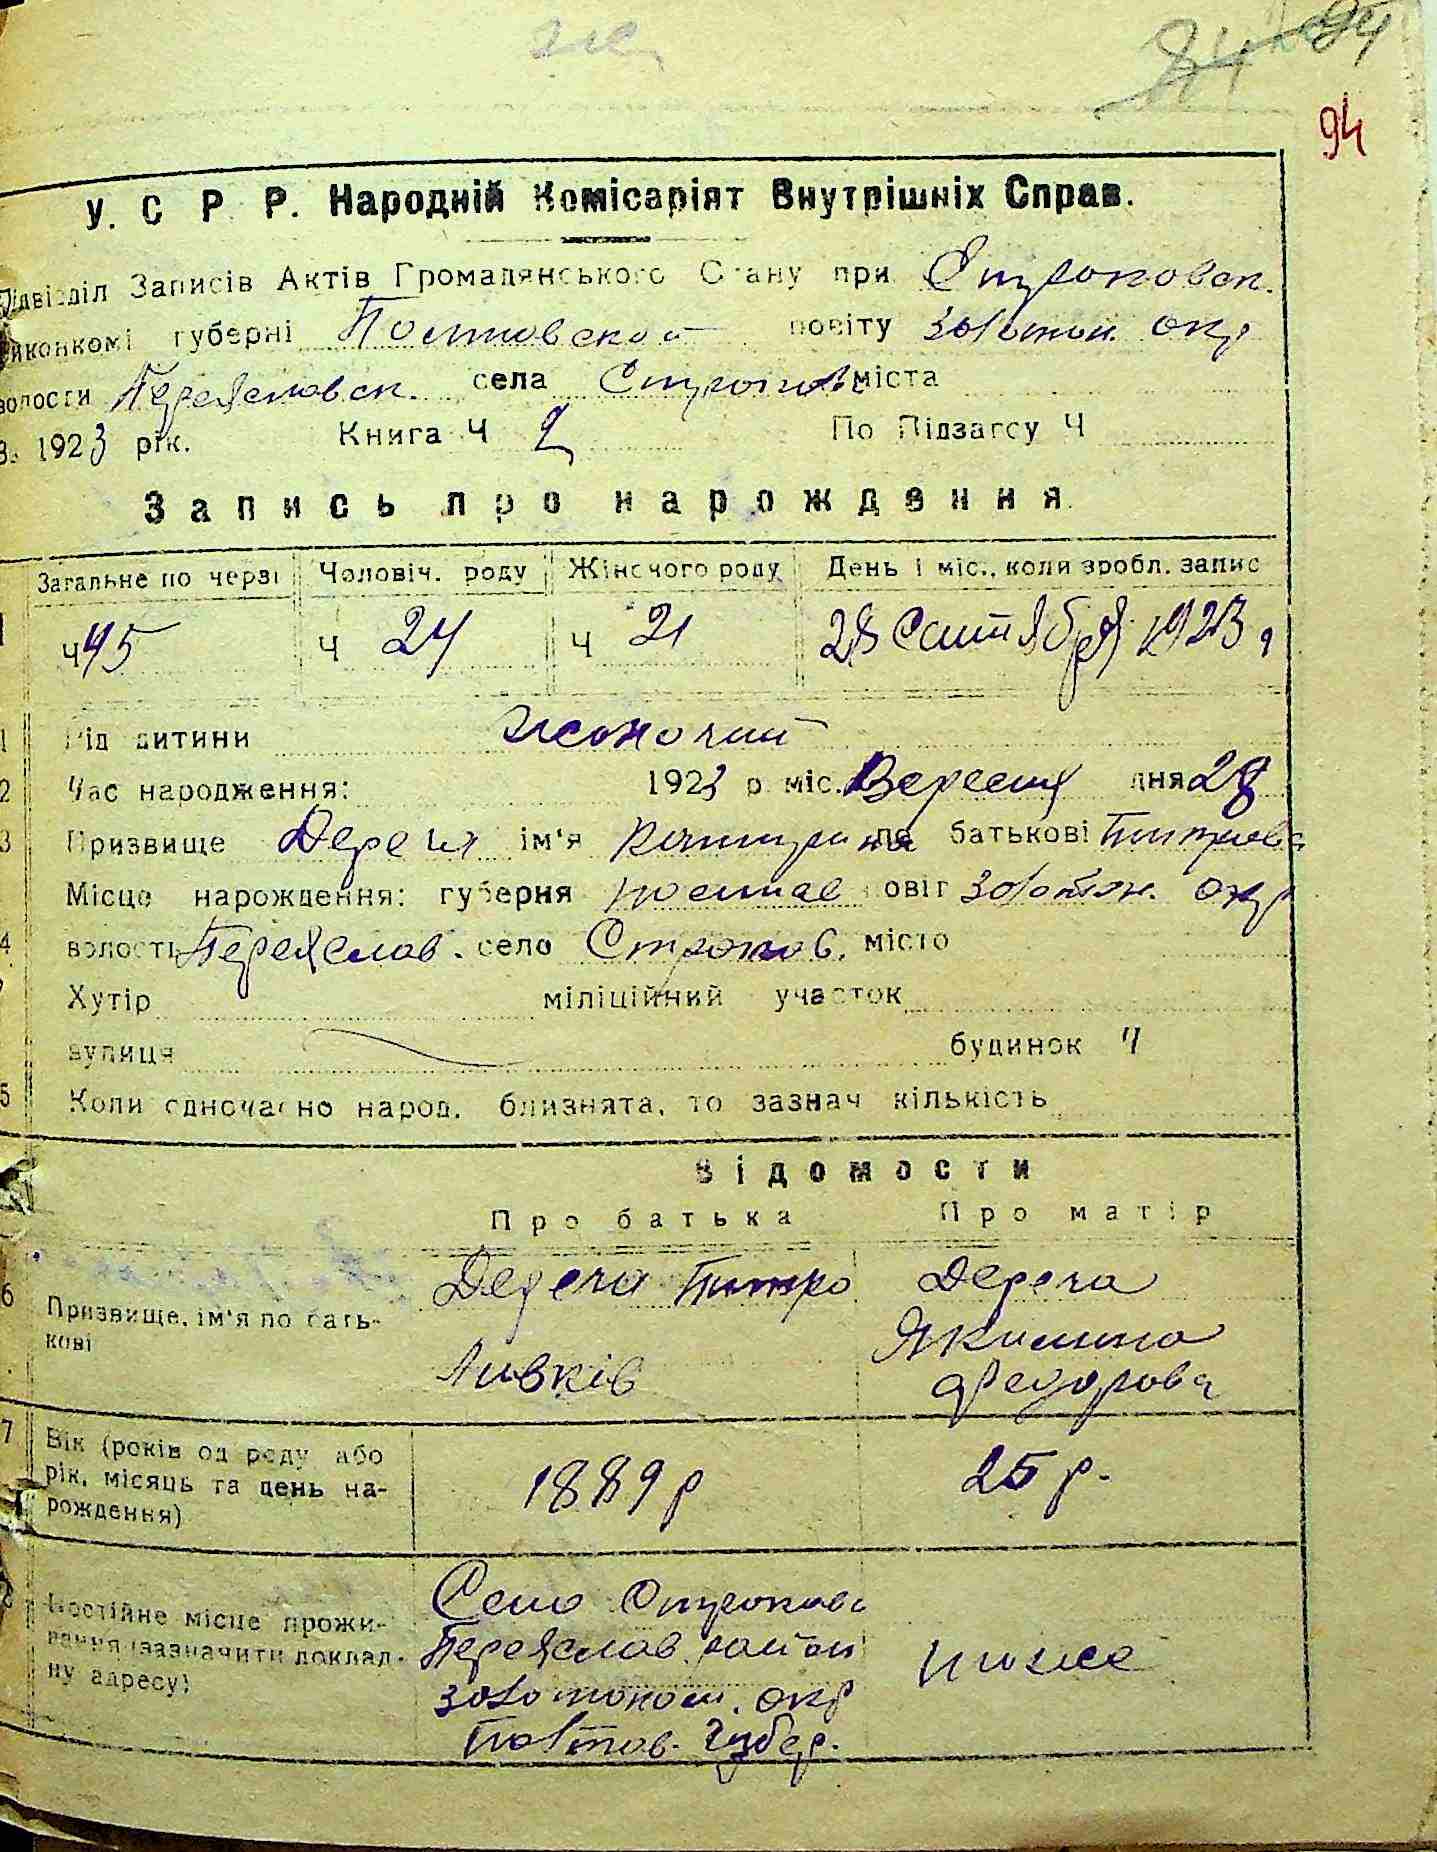 94
У. С. Р. Р. Народній Комісаріят Внутрішніх Справ.
Підвідділ Записів Актів Громадянського Стану при Строковск.
йконкомі губерні Полтовской повіту Золотон. окр
волости Переяславск. села Строкова міста
За 1923 рік. Книга Ч 2 По Підзагсу Ч
Запись про нарождення
Загальне по черзі Чоловіч. роду Жіночого роду День і міс., коли зробл. запис
Ч 45 Ч 24 Ч 21 28 Сентября 1923 г
1 Рід дитини жоночий
2 Час народження: 1923 р. міс. Вересня дня 28
3 Призвище Дереча ім'я Катирина по батькові Питрова
Місце нарождення: губерня Полтав повіт Золотон. окр
4 волость Переяслав. село Строков. місто
Хутір міліційний участок
вулиця будинок Ч
5 Коли одночасно народ. близнята, то зазнач кількість
Відомости
Про батька Про матір
6 Призвище, ім'я по батькові Дереча Питро Дереча
Якилина
Федорова
7 Вік (років од роду або
рік, місяць та день на-
рождення) 1889 р 25 р.
8 Постійне місце прожи-
вання (зазначити доклад-
ну адресу) Село Строкова
Переяслав. район тоже
Золотоном. окр
Полтав. Губер.